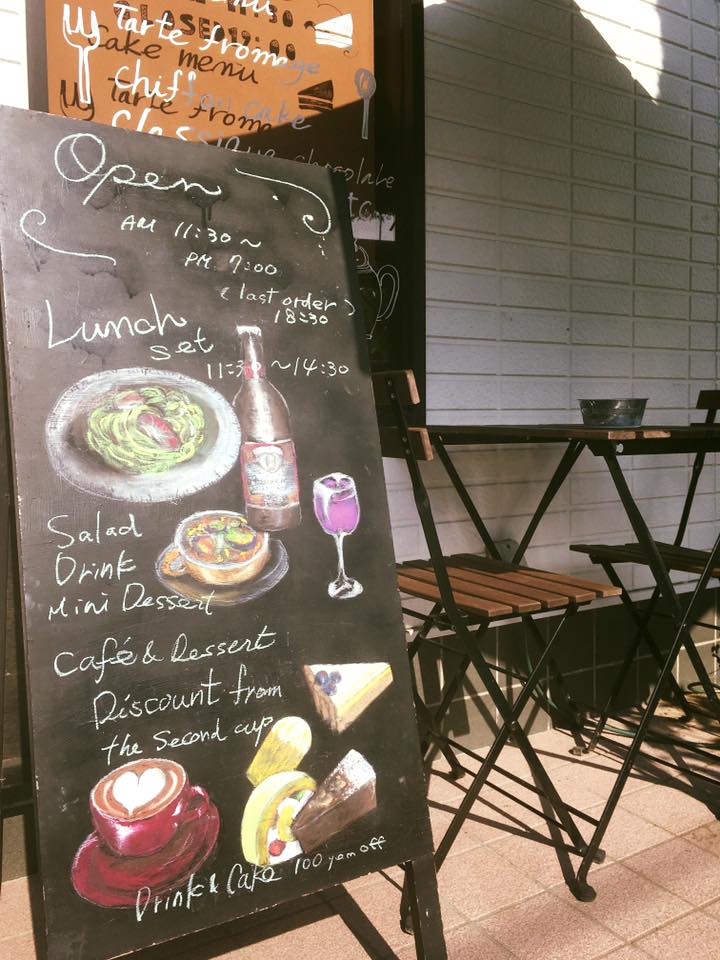 Tarte fromage
Cake menu
chiffon cake
Tarte frome
Classique chocolate
Open
AM 11:30~
PM 7:00
(last order)
18:30
Lunch
set
11:30~14:30
Salad
Drink
Mini Dessert
Café & Dessert
Discount from
the second cup
Drink & Cake 100 yen off